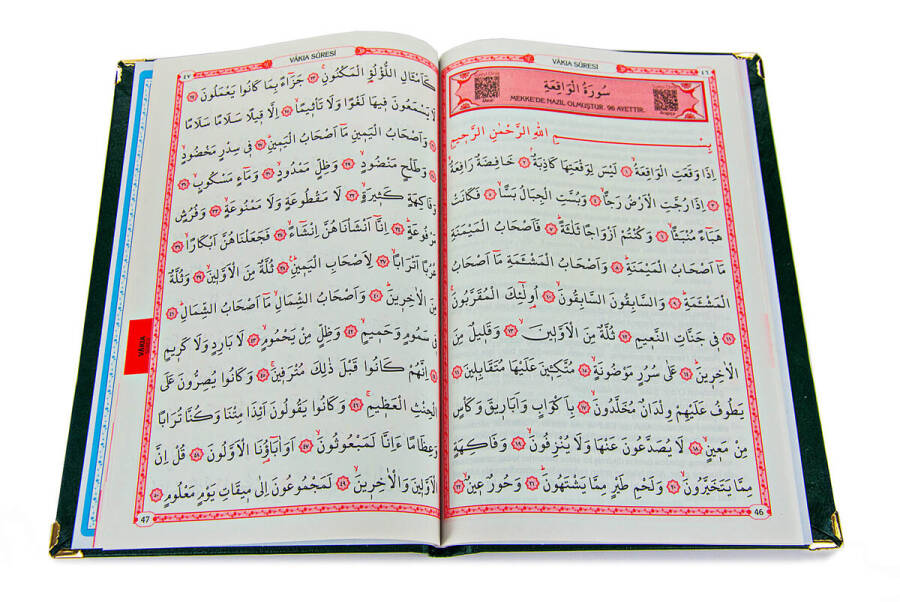 VÂKIA SÛRESİ
٤٦
سُورَةُ الْوَاقِعَةِ
MEKKE'DE NAZİL OLMUŞTUR. 96 AYETTİR.
بِسْمِ اللهِ الرَّحْمٰنِ الرَّحِيمِ
اِذَا وَقَعَتِ الْوَاقِعَةُ ﴿١﴾ لَيْسَ لِوَقْعَتِهَا كَاذِبَةٌ ﴿٢﴾ خَافِضَةٌ رَافِعَةٌ
﴿٣﴾ اِذَا رُجَّتِ الْاَرْضُ رَجًّا ﴿٤﴾ وَبُسَّتِ الْجِبَالُ بَسًّا ﴿٥﴾ فَكَانَتْ
هَبَٓاءً مُنْبَثًّا ﴿٦﴾ وَكُنْتُمْ اَزْوَاجًا ثَلٰثَةً ﴿٧﴾ فَاَصْحَابُ الْمَيْمَنَةِ
مَٓا اَصْحَابُ الْمَيْمَنَةِ ﴿٨﴾ وَاَصْحَابُ الْمَشْـَٔمَةِ مَٓا اَصْحَابُ
الْمَشْـَٔمَةِ ﴿٩﴾ وَالسَّابِقُونَ السَّابِقُونَ ﴿١٠﴾ اُولٰٓئِكَ الْمُقَرَّبُونَ
﴿١١﴾ فِي جَنَّاتِ النَّعِيمِ ﴿١٢﴾ ثُلَّةٌ مِنَ الْاَوَّلِينَ ﴿١٣﴾ وَقَلِيلٌ مِنَ
الْاٰخِرِينَ ﴿١٤﴾ عَلٰى سُرُرٍ مَوْضُونَةٍ ﴿١٥﴾ مُتَّكِـِٔينَ عَلَيْهَا مُتَقَابِلِينَ ﴿١٦﴾
يَطُوفُ عَلَيْهِمْ وِلْدَانٌ مُخَلَّدُونَ ﴿١٧﴾ بِاَكْوَابٍ وَاَبَارِيقَ وَكَأْسٍ
مِنْ مَعِينٍ ﴿١٨﴾ لَا يُصَدَّعُونَ عَنْهَا وَلَا يُنْزِفُونَ ﴿١٩﴾ وَفَاكِهَةٍ
مِمَّا يَتَخَيَّرُونَ ﴿٢٠﴾ وَلَحْمِ طَيْرٍ مِمَّا يَشْتَهُونَ ﴿٢١﴾ وَحُورٌ عِينٌ ﴿٢٢﴾
46
VÂKIA SÛRESİ
٤٧
كَاَمْثَالِ اللُّؤْلُؤِ الْمَكْنُونِ ﴿٢٣﴾ جَزَٓاءً بِمَا كَانُوا يَعْمَلُونَ ﴿٢٤﴾
لَا يَسْمَعُونَ فِيهَا لَغْوًا وَلَا تَأْثِيمًا ﴿٢٥﴾ اِلَّا قِيلًا سَلَامًا سَلَامًا
﴿٢٦﴾ وَاَصْحَابُ الْيَمِينِ مَٓا اَصْحَابُ الْيَمِينِ ﴿٢٧﴾ فِي سِدْرٍ مَخْضُودٍ
﴿٢٨﴾ وَطَلْحٍ مَنْضُودٍ ﴿٢٩﴾ وَظِلٍّ مَمْدُودٍ ﴿٣٠﴾ وَمَٓاءٍ مَسْكُوبٍ ﴿٣١﴾
وَفَاكِهَةٍ كَثِيرَةٍ ﴿٣٢﴾ لَا مَقْطُوعَةٍ وَلَا مَمْنُوعَةٍ ﴿٣٣﴾ وَفُرُشٍ
مَرْفُوعَةٍ ﴿٣٤﴾ اِنَّٓا اَنْشَأْنَاهُنَّ اِنْشَٓاءً ﴿٣٥﴾ فَجَعَلْنَاهُنَّ اَبْكَارًا ﴿٣٦﴾
عُرُبًا اَتْرَابًا ﴿٣٧﴾ لِاَصْحَابِ الْيَمِينِ ﴿٣٨﴾ ثُلَّةٌ مِنَ الْاَوَّلِينَ ﴿٣٩﴾ وَثُلَّةٌ
مِنَ الْاٰخِرِينَ ﴿٤٠﴾ وَاَصْحَابُ الشِّمَالِ مَٓا اَصْحَابُ الشِّمَالِ ﴿٤١﴾
فِي سَمُومٍ وَحَمِيمٍ ﴿٤٢﴾ وَظِلٍّ مِنْ يَحْمُومٍ ﴿٤٣﴾ لَا بَارِدٍ وَلَا كَرِيمٍ
﴿٤٤﴾ اِنَّهُمْ كَانُوا قَبْلَ ذٰلِكَ مُتْرَفِينَ ﴿٤٥﴾ وَكَانُوا يُصِرُّونَ عَلَى
الْحِنْثِ الْعَظِيمِ ﴿٤٦﴾ وَكَانُوا يَقُولُونَ اَئِذَا مِتْنَا وَكُنَّا تُرَابًا
وَعِظَامًا ءَاِنَّا لَمَبْعُوثُونَ ﴿٤٧﴾ اَوَاٰبَٓاؤُنَا الْاَوَّلُونَ ﴿٤٨﴾ قُلْ اِنَّ
الْاَوَّلِينَ وَالْاٰخِرِينَ ﴿٤٩﴾ لَمَجْمُوعُونَ اِلٰى مِيقَاتِ يَوْمٍ مَعْلُومٍ ﴿٥٠﴾
47
VÂKIA